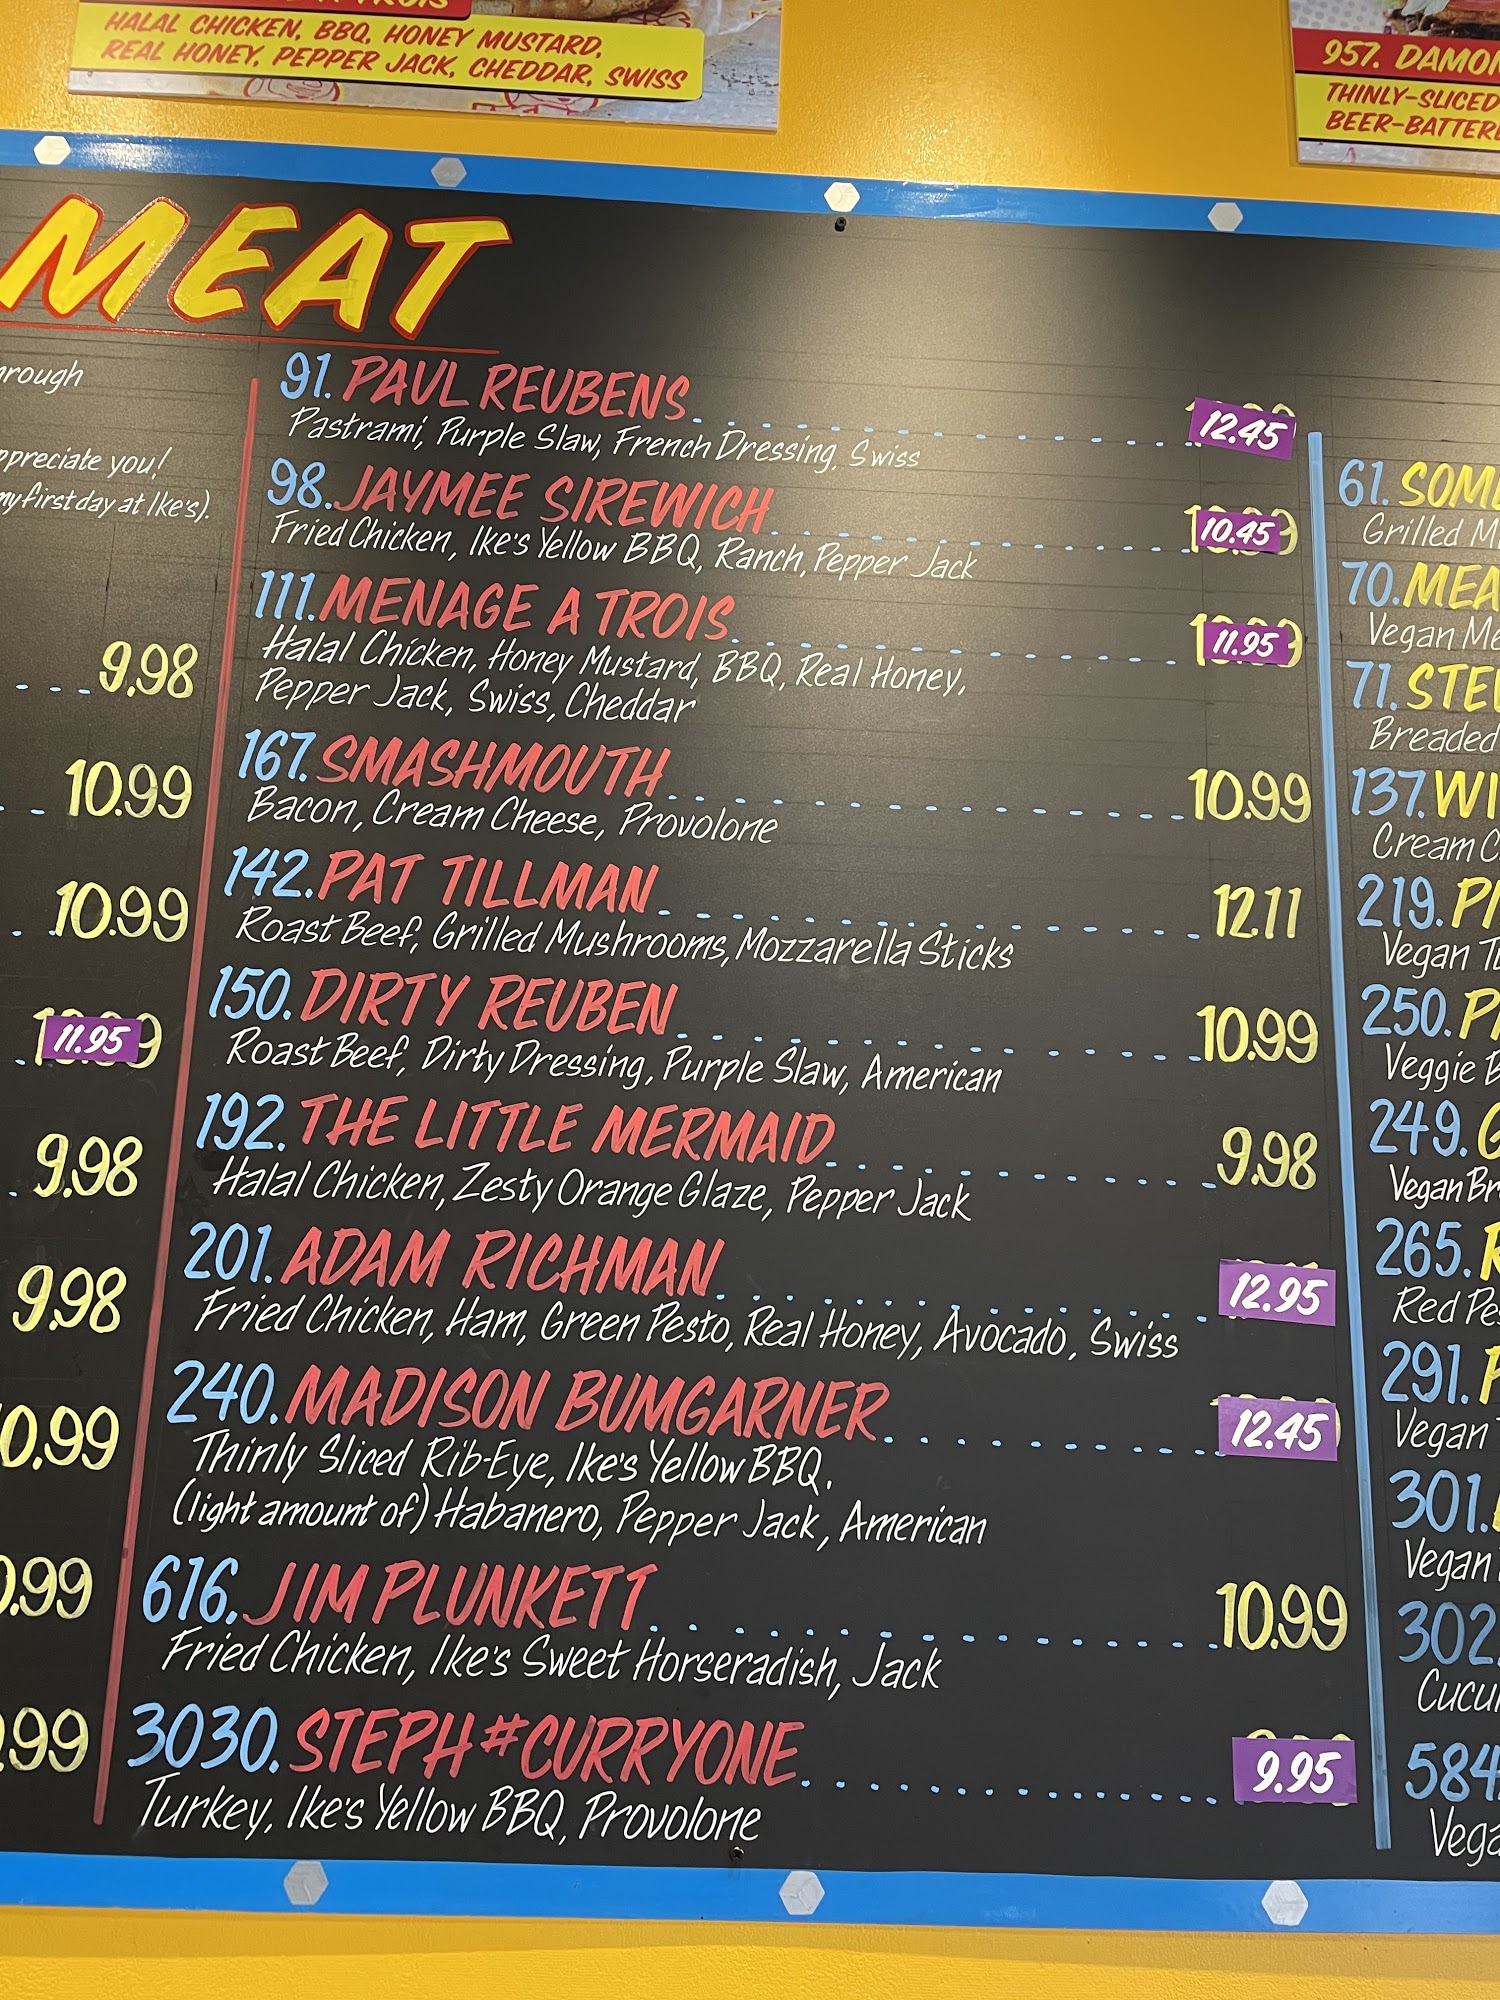 HALAL CHICKEN, BBQ, HONEY MUSTARD,
REAL HONEY, PEPPER JACK, CHEDDAR, SWISS
957. DAMON
THINLY-SLICED
BEER-BATTERE
MEAT
hrough
ppreciate you!
my first day at Ike's).
9.98
10.99
10.99
11.95
9.98
9.98
0.99
0.99
.99
91. PAUL REUBENS 12.45
Pastrami, Purple Slaw, French Dressing, Swiss
98. JAYMEE SIREWICH 10.45
Fried Chicken, Ike's Yellow BBQ, Ranch, Pepper Jack
111. MENAGE A TROIS 11.95
Halal Chicken, Honey Mustard, BBQ, Real Honey,
Pepper Jack, Swiss, Cheddar
167. SMASHMOUTH 10.99
Bacon, Cream Cheese, Provolone
142. PAT TILLMAN 12.11
Roast Beef, Grilled Mushrooms, Mozzarella Sticks
150. DIRTY REUBEN 10.99
Roast Beef, Dirty Dressing, Purple Slaw, American
192. THE LITTLE MERMAID 9.98
Halal Chicken, Zesty Orange Glaze, Pepper Jack
201. ADAM RICHMAN 12.95
Fried Chicken, Ham, Green Pesto, Real Honey, Avocado, Swiss
240. MADISON BUMGARNER 12.45
Thinly Sliced Rib-Eye, Ike's Yellow BBQ,
(light amount of) Habanero, Pepper Jack, American
616. JIM PLUNKETT 10.99
Fried Chicken, Ike's Sweet Horseradish, Jack
3030. STEPH #CURRYONE 9.95
Turkey, Ike's Yellow BBQ, Provolone
61. SOME
Grilled M
70. MEA
Vegan Me
71. STE
Breaded
137. WI
Cream C
219. P
Vegan T
250. P
Veggie B
249. G
Vegan Br
265. R
Red Pe
291. P
Vegan
301.
Vegan
302.
Cucu
584
Vega